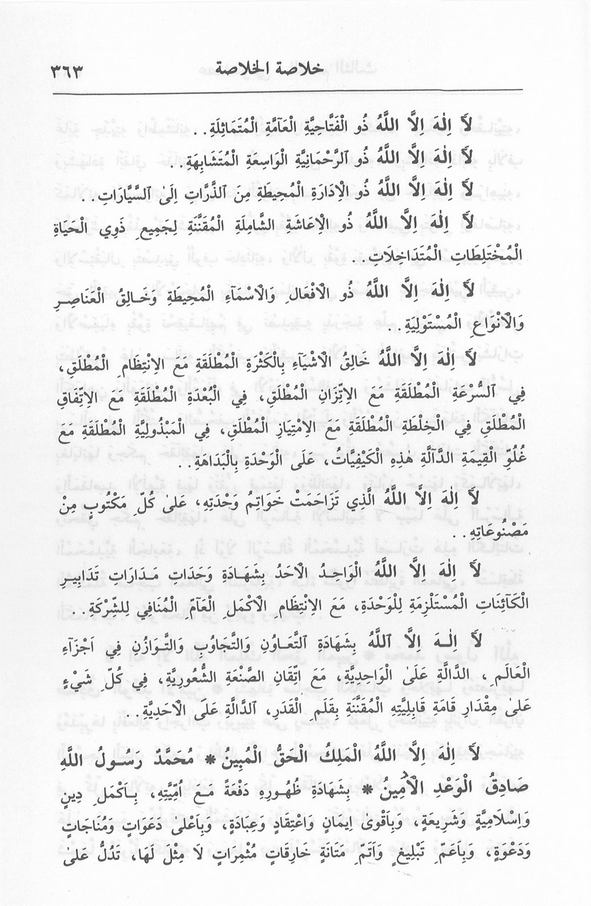 خلاصة الخلاصة ٣٦٣
لاَ اِلٰهَ اِلاَّ اللّٰهُ ذُو الْفَتَّاحِيَّةِ الْعَامَّةِ الْمُتَمَاثِلَةِ..
لاَ اِلٰهَ اِلاَّ اللّٰهُ ذُو الرَّحْمَانِيَّةِ الْوَاسِعَةِ الْمُتَشَابِهَةِ..
لاَ اِلٰهَ اِلاَّ اللّٰهُ ذُو الْاِدَارَةِ الْمُحِيطَةِ مِنَ الذَّرَّاتِ اِلَى السَّيَّارَاتِ..
لاَ اِلٰهَ اِلاَّ اللّٰهُ ذُو الْاِعَاشَةِ الشَّامِلَةِ الْمُقَنَّنَةِ لِجَمِيعِ ذَوِي الْحَيَاةِ
الْمُخْتَلِطَاتِ الْمُتَدَاخِلَاتِ..
لاَ اِلٰهَ اِلاَّ اللّٰهُ ذُو الْاَفْعَالِ وَالْاَسْمَاءِ الْمُحِيطَةِ وَخَالِقُ الْعَنَاصِرِ
وَالْاَنْوَاعِ الْمُسْتَوْلِيَةِ..
لاَ اِلٰهَ اِلاَّ اللّٰهُ خَالِقُ الْاَشْيَاءِ بِالْكَثْرَةِ الْمُطْلَقَةِ مَعَ الْاِنْتِظَامِ الْمُطْلَقِ،
فِي السُّرْعَةِ الْمُطْلَقَةِ مَعَ الْاِتِّزَانِ الْمُطْلَقِ، فِي الْبُعْدَةِ الْمُطْلَقَةِ مَعَ الْاِتِّفَاقِ
الْمُطْلَقِ فِي الْخِلْطَةِ الْمُطْلَقَةِ مَعَ الْاِمْتِيَازِ الْمُطْلَقِ، فِي الْمَبْذُولِيَّةِ الْمُطْلَقَةِ مَعَ
غُلُوِّ الْقِيمَةِ الدَّالَّةِ هٰذِهِ الْكَيْفِيَّاتُ، عَلَى الْوَحْدَةِ بِالْبَدَاهَةِ..
لاَ اِلٰهَ اِلاَّ اللّٰهُ الَّذِي تَزَاحَمَتْ خَوَاتِمُ وَحْدَتِهِ، عَلىٰ كُلِّ مَكْتُوبٍ مِنْ
مَصْنُوعَاتِهِ..
لاَ اِلٰهَ اِلاَّ اللّٰهُ الْوَاحِدُ الْاَحَدُ بِشَهَادَةِ وَحَدَاتِ مَدَارَاتِ تَدَابِيرِ
الْكَآئِنَاتِ الْمُسْتَلْزِمَةِ لِلْوَحْدَةِ، مَعَ الْاِنْتِظَامِ الْاَكْمَلِ الْعَآمِّ الْمُنَافِي لِلشِّرْكَةِ..
لاَ اِلٰهَ اِلاَّ اللّٰهُ بِشَهَادَةِ التَّعَاوُنِ وَالتَّجَاوُبِ وَالتَّوَازُنِ فِي اَجْزَاءِ
الْعَالَمِ، الدَّالَّةِ عَلَى الْوَاحِدِيَّةِ، مَعَ اِتْقَانِ الصَّنْعَةِ الشُّعُورِيَّةِ، فِي كُلِّ شَيْءٍ
عَلىٰ مِقْدَارِ قَامَةِ قَابِلِيَّتِهِ الْمُقَنَّنَةِ بِقَلَمِ الْقَدَرِ، الدَّالَّةِ عَلَى الْاَحَدِيَّةِ..
لاَ اِلٰهَ اِلاَّ اللّٰهُ الْمَلِكُ الْحَقُّ الْمُبِينُ * مُحَمَّدٌ رَسُولُ اللّٰهِ
صَادِقُ الْوَعْدِ الْاَمِينُ * بِشَهَادَةِ ظُهُورِهِ دَفْعَةً مَعَ اُمِّيَّتِهِ، بِاَكْمَلِ دِينٍ
وَاِسْلَامِيَّةٍ وَشَرِيعَةٍ، وَبِاَقْوٰى اِيمَانٍ وَاعْتِقَادٍ وَعِبَادَةٍ، وَبِاَعْلٰى دَعَوَاتٍ وَمُنَاجَاتٍ
وَدَعْوَةٍ، وَبِاَعَمِّ تَبْلِيغٍ وَاَتَمِّ مَتَانَةٍ خَارِقَاتٍ مُثْمِرَاتٍ لَا مِثْلَ لَهَا، تَدُلُّ عَلىٰ